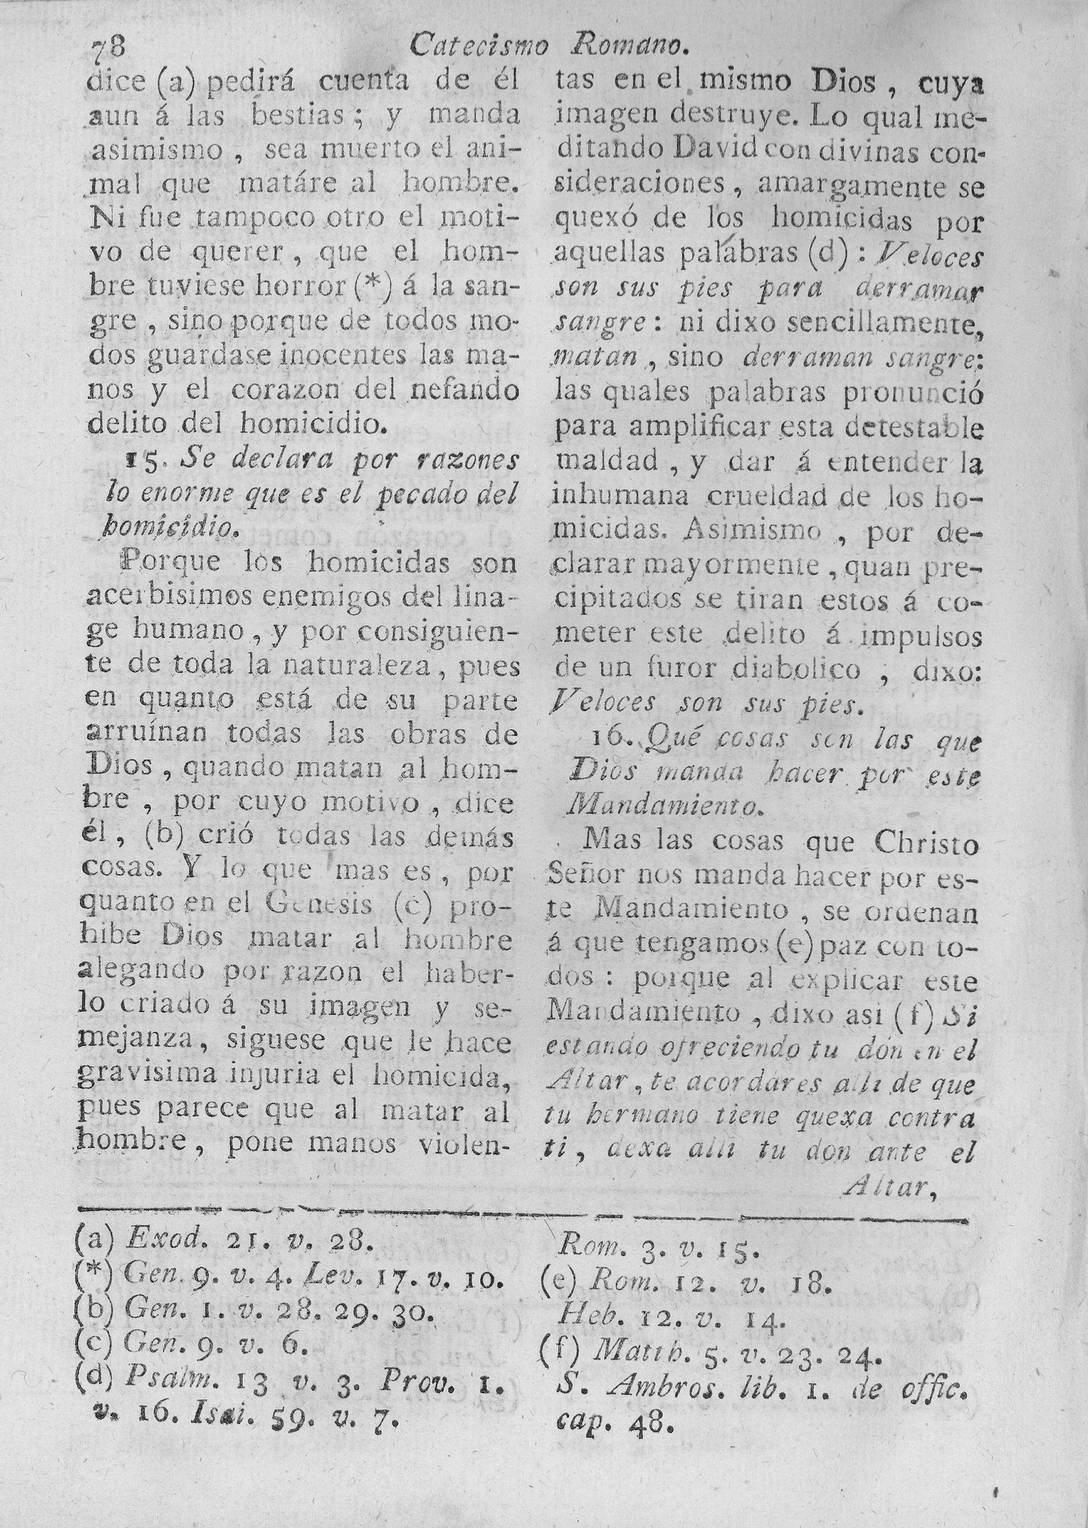 78
Catecismo Romano.
dice (a) pedirá cuenta de él
aun á las bestias; y manda
asimismo, sea muerto el ani-
mal que matáre al hombre.
Ni fue tampoco otro el moti-
vo de querer, que el hom-
bre tuviese horror (*) á la san-
gre, sino porque de todos mo-
dos guardase inocentes las ma-
nos y el corazon del nefando
delito del homicidio.
15. Se declara por razones
lo enorme que es el pecado del
homicidio.
Porque los homicidas son
acerbisimos enemigos del lina-
ge humano, y por consiguien-
te de toda la naturaleza, pues
en quanto está de su parte
arruínan todas las obras de
Dios, quando matan al hom-
bre, por cuyo motivo, dice
él, (b) crió todas las demás
cosas. Y lo que mas es, por
quanto en el Genesis (c) pro-
hibe Dios matar al hombre
alegando por razon el haber-
lo criado á su imagen y se-
mejanza, siguese que le hace
gravisima injuria el homicida,
pues parece que al matar al
hombre, pone manos violen-
tas en el mismo Dios, cuya
imagen destruye. Lo qual me-
ditando David con divinas con-
sideraciones, amargamente se
quexó de los homicidas por
aquellas palabras (d): Veloces
son sus pies para derramar
sangre: ni dixo sencillamente,
matan, sino derraman sangre:
las quales palabras pronunció
para amplificar esta detestable
maldad, y dar á entender la
inhumana crueldad de los ho-
micidas. Asimismo, por de-
clarar mayormente, quan pre-
cipitados se tiran estos á co-
meter este delito á impulsos
de un furor diabolico, dixo:
Veloces son sus pies.
16. Qué cosas son las que
Dios manda hacer por este
Mandamiento.
Mas las cosas que Christo
Señor nos manda hacer por es-
te Mandamiento, se ordenan
á que tengamos (e) paz con to-
dos: porque al explicar este
Mandamiento, dixo asi (f) Si
estando ofreciendo tu don en el
Altar, te acordáres alli de que
tu hermano tiene quexa contra
ti, dexa alli tu don ante el
Altar,
(a) Exod. 21. v. 28.
(*) Gen. 9. v. 4. Lev. 17. v. 10.
(b) Gen. 1. v. 28. 29. 30.
(c) Gen. 9. v. 6.
(d) Psalm. 13 v. 3. Prov. 1.
v. 16. Isai. 59. v. 7.
Rom. 3. v. 15.
(e) Rom. 12. v. 18.
Heb. 12. v. 14.
(f) Matth. 5. v. 23. 24.
S. Ambros. lib. 1. de offic.
cap. 48.